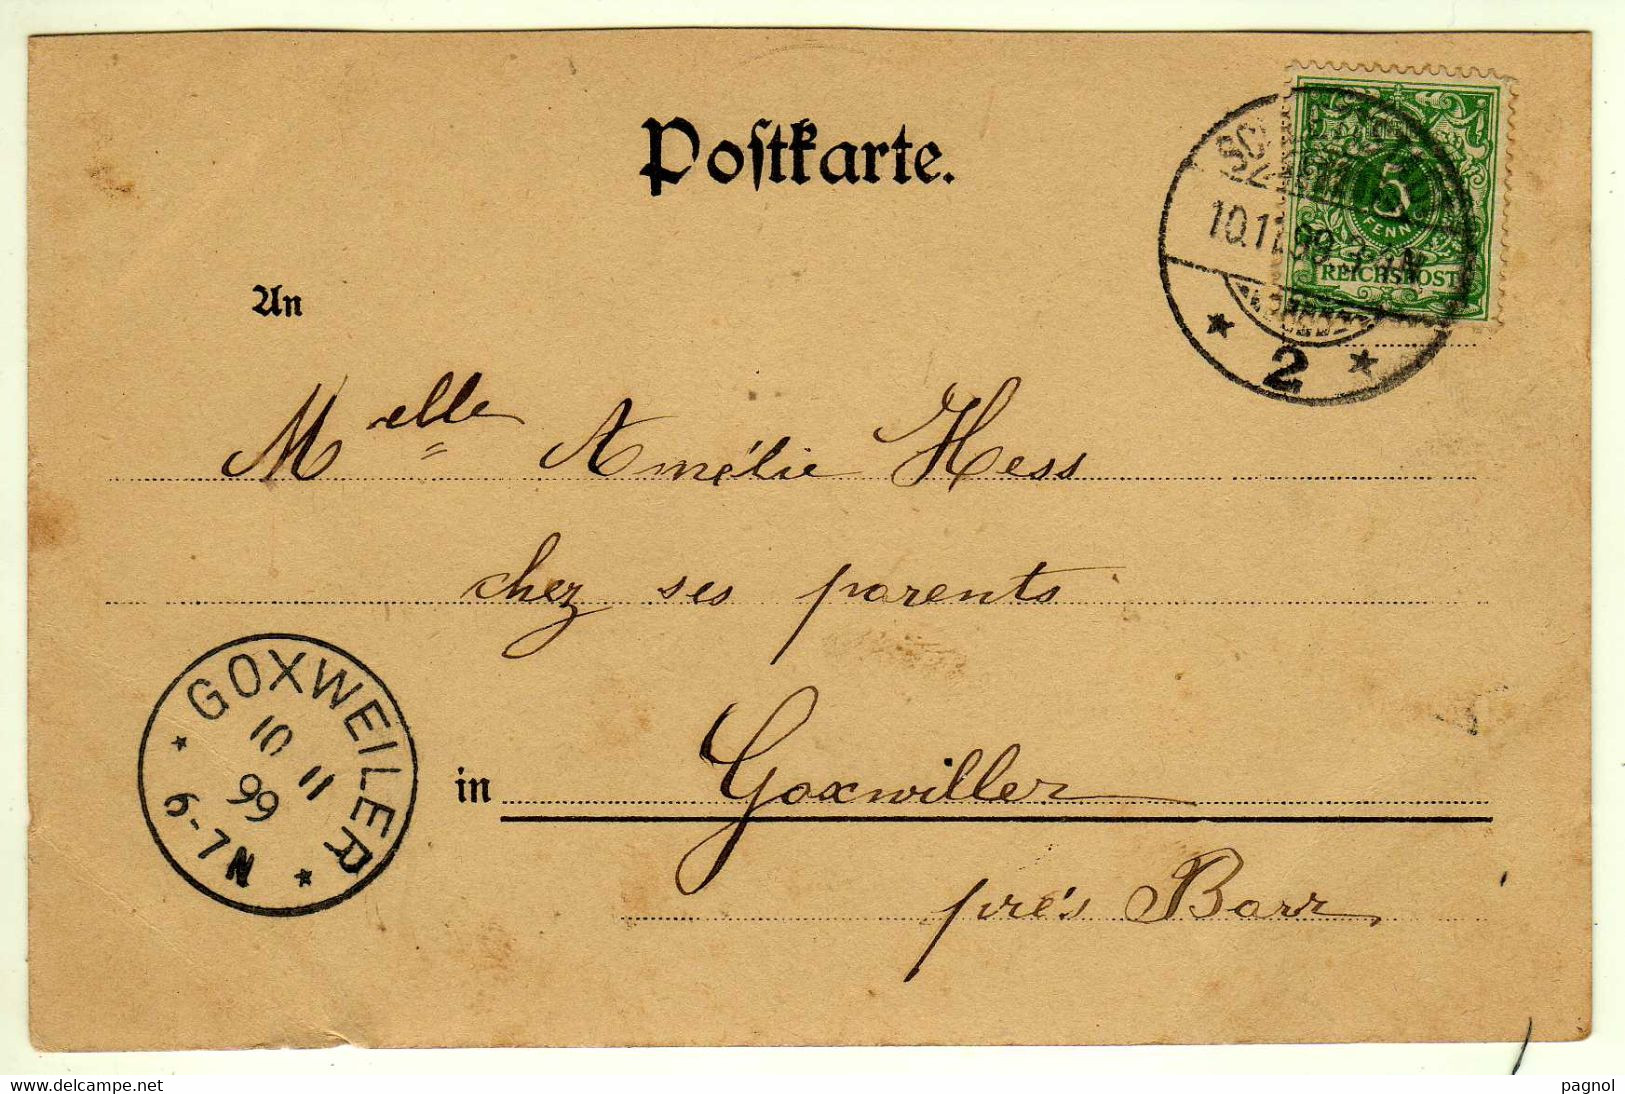 Postkarte.
5
PFENNIG
REICHSPOST
10.11.99
2
An
Melle Amélie Hess
chez ses parents
GOXWEILER
10 11
99
6-7N
in Goxwiller
prés Barr
delcampe.net
pagnol